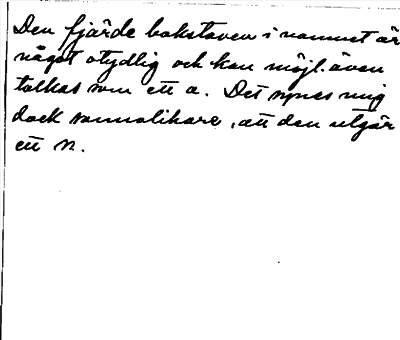 Den fjärde bokstaven i namnet är
något otydlig och kan möjl. även
tolkas som ett a. Det synes mig
dock sannolikare, att den utgör
ett n.